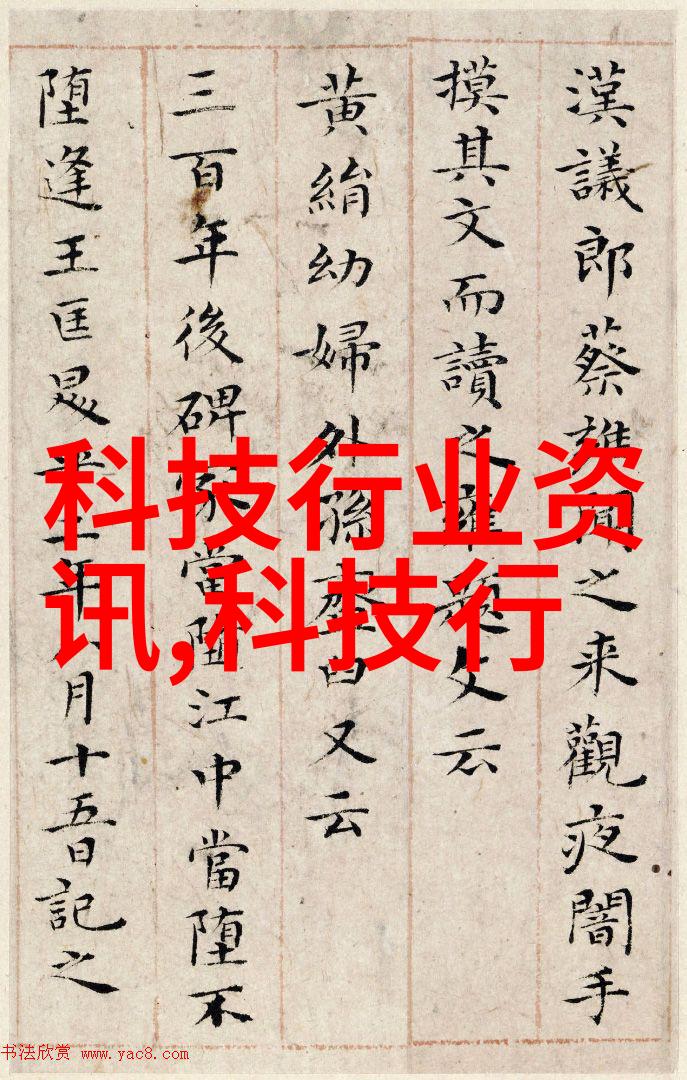 漢議郎蔡雍聞之来觀夜闇手
摸其文而讀之雍題文云
黄絹幼婦外孫臼又云
三百年後碑冢當堕江中當堕不
堕逢王匡二年八月十五日記之
科技行业资
讯,科技行
书法欣赏 www.yac8.com